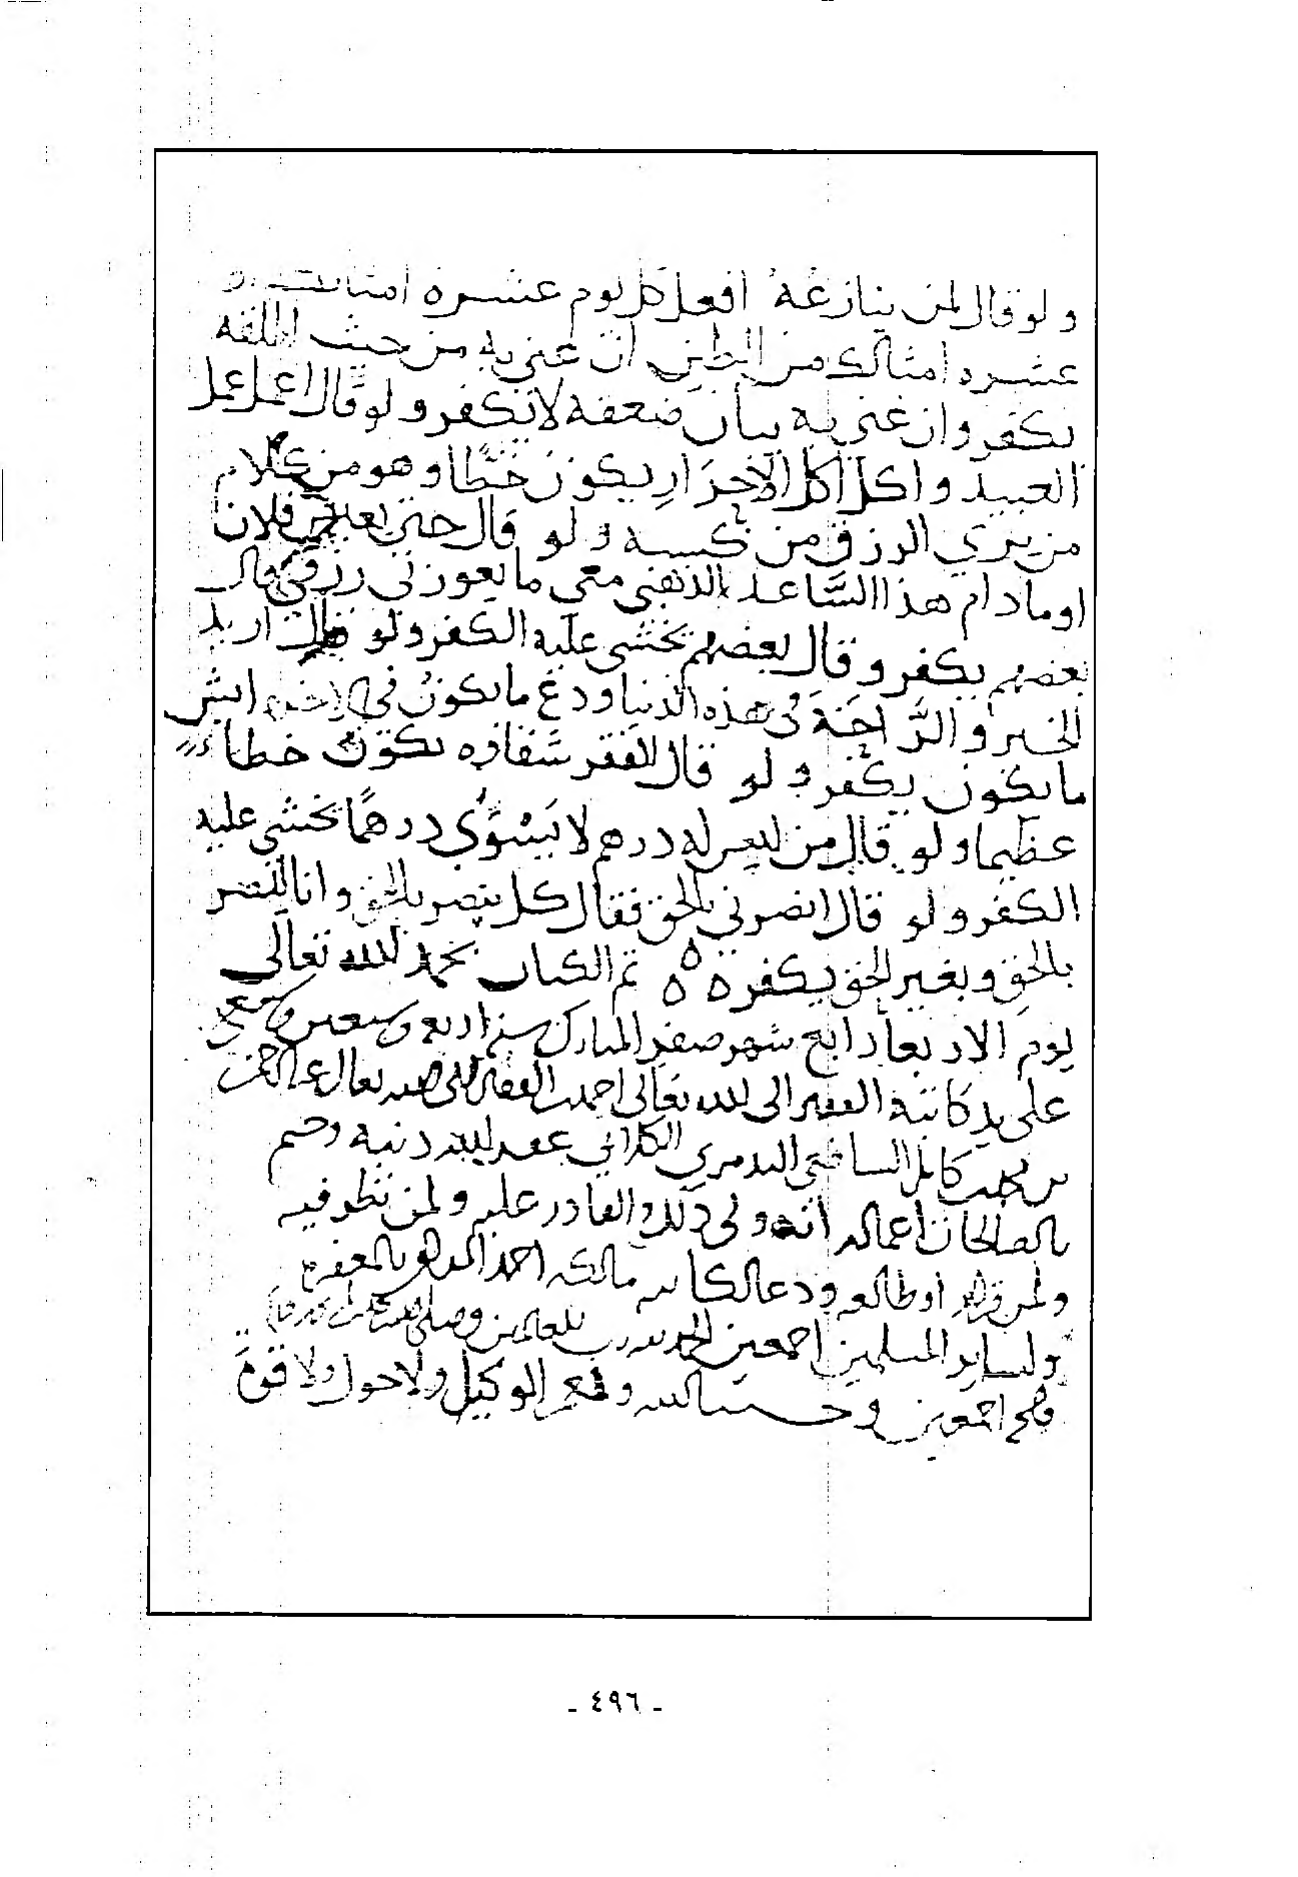 ولو قال لمن ينازعهُ افعل كل يوم عشره امثالك
عشره امثالك من الطين ان عني به من حيث الخلقه
يكفر وان عني به بيان ضعفه لا يكفر ولو قال اعمل عمل
العبيد واكل اكل الاحرار يكون خطًا وهو من كلام
من يري الرزق من كسبه ولو قال حتي فلان
او مادام هذا الساعد الذهبي معي ما يعوزني رزقي قال
بعضهم يكفر وقال بعضهم يخشي عليه الكفر ولو قال اريد
الخير والراحة في هذه الدنيا ودع ما يكون في الاخره ايش
ما يكون يكفر ولو قال الفقر شقاوه يكون خطاءً
عظيما ولو قال من ليس له درهم لا يَسْوَي درهمًا يخشي عليه
الكفر ولو قال انصرني بالحق فقال كل ينصر بالحق وانا انصر
بالحق وبغير الحق يكفر ه ه ه تم الكتاب بحمد الله تعالي
يوم الاربعا رابع شهر صفر المبارك سنة اربع وسبعين
علي يد كاتبه الفقير الي الله تعالي احمد
بن الشافعي التدمري غفر الله ذنبه وختم
بالصالحات اعماله انه ولي ذلك والقادر عليه ولمن نظر فيه
ولمن قراه او طالعه ودعا لكاتبه مالكه احمد بالمغفره
ولساير المسلمين اجمعين الحمد لله رب العالمين وصلي الله
اجمعين وحسبنا الله ونعم الوكيل ولا حول ولا قوة
- ٤٩٦ -